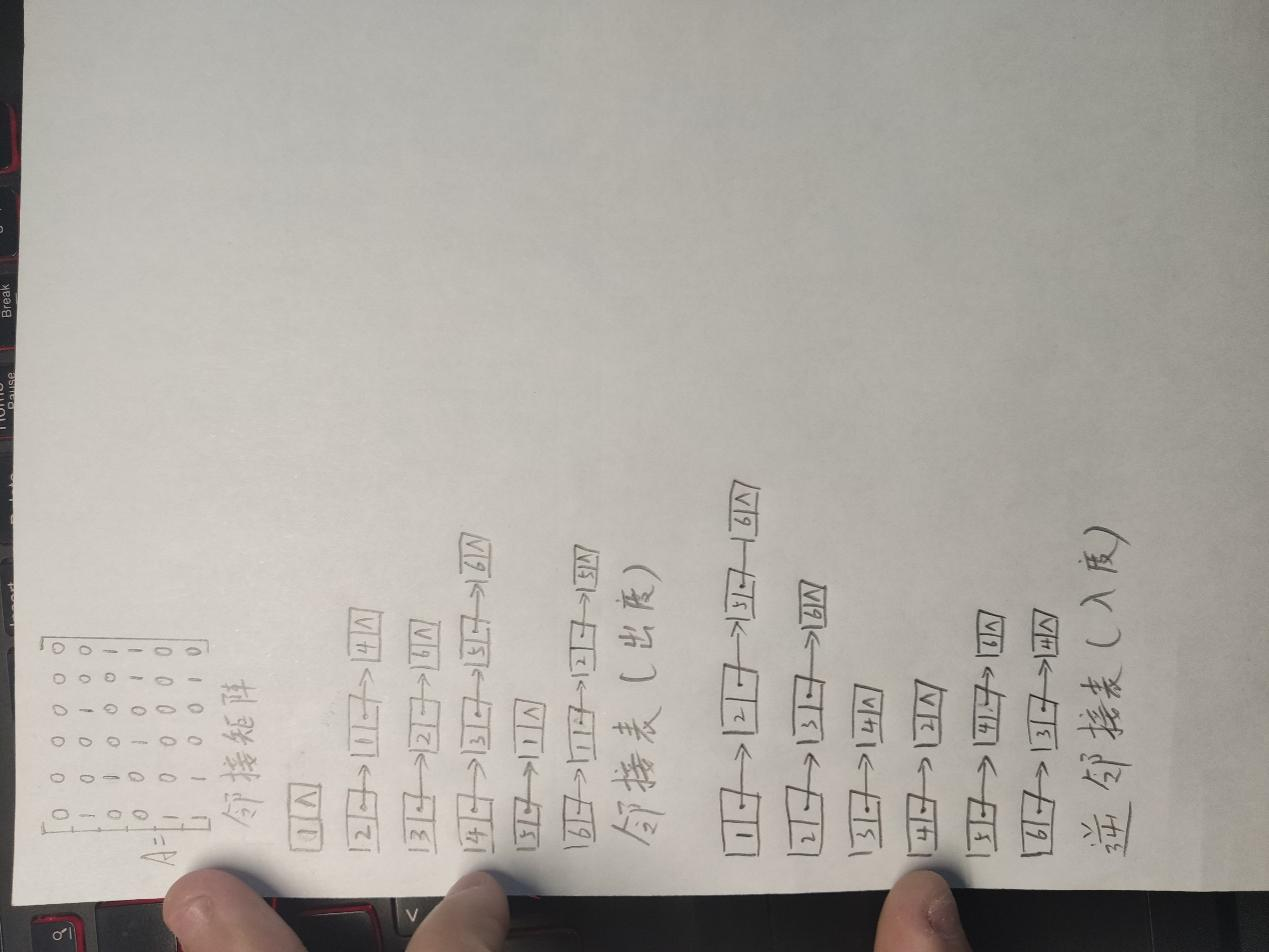 A=
0 0 0 0 0 0
1 0 0 1 0 0
0 1 0 0 0 1
0 0 1 0 1 1
1 0 0 0 0 0
1 1 0 0 1 0
邻接矩阵
1 ∧
2 → 1 → 4 ∧
3 → 2 → 6 ∧
4 → 3 → 5 → 6 ∧
5 → 1 ∧
6 → 1 → 2 → 5 ∧
邻接表(出度)
1 → 2 → 5 — 6 ∧
2 → 3 → 6 ∧
3 → 4 ∧
4 → 2 ∧
5 → 4 → 6 ∧
6 → 3 → 4 ∧
逆邻接表(入度)
Break
Pause